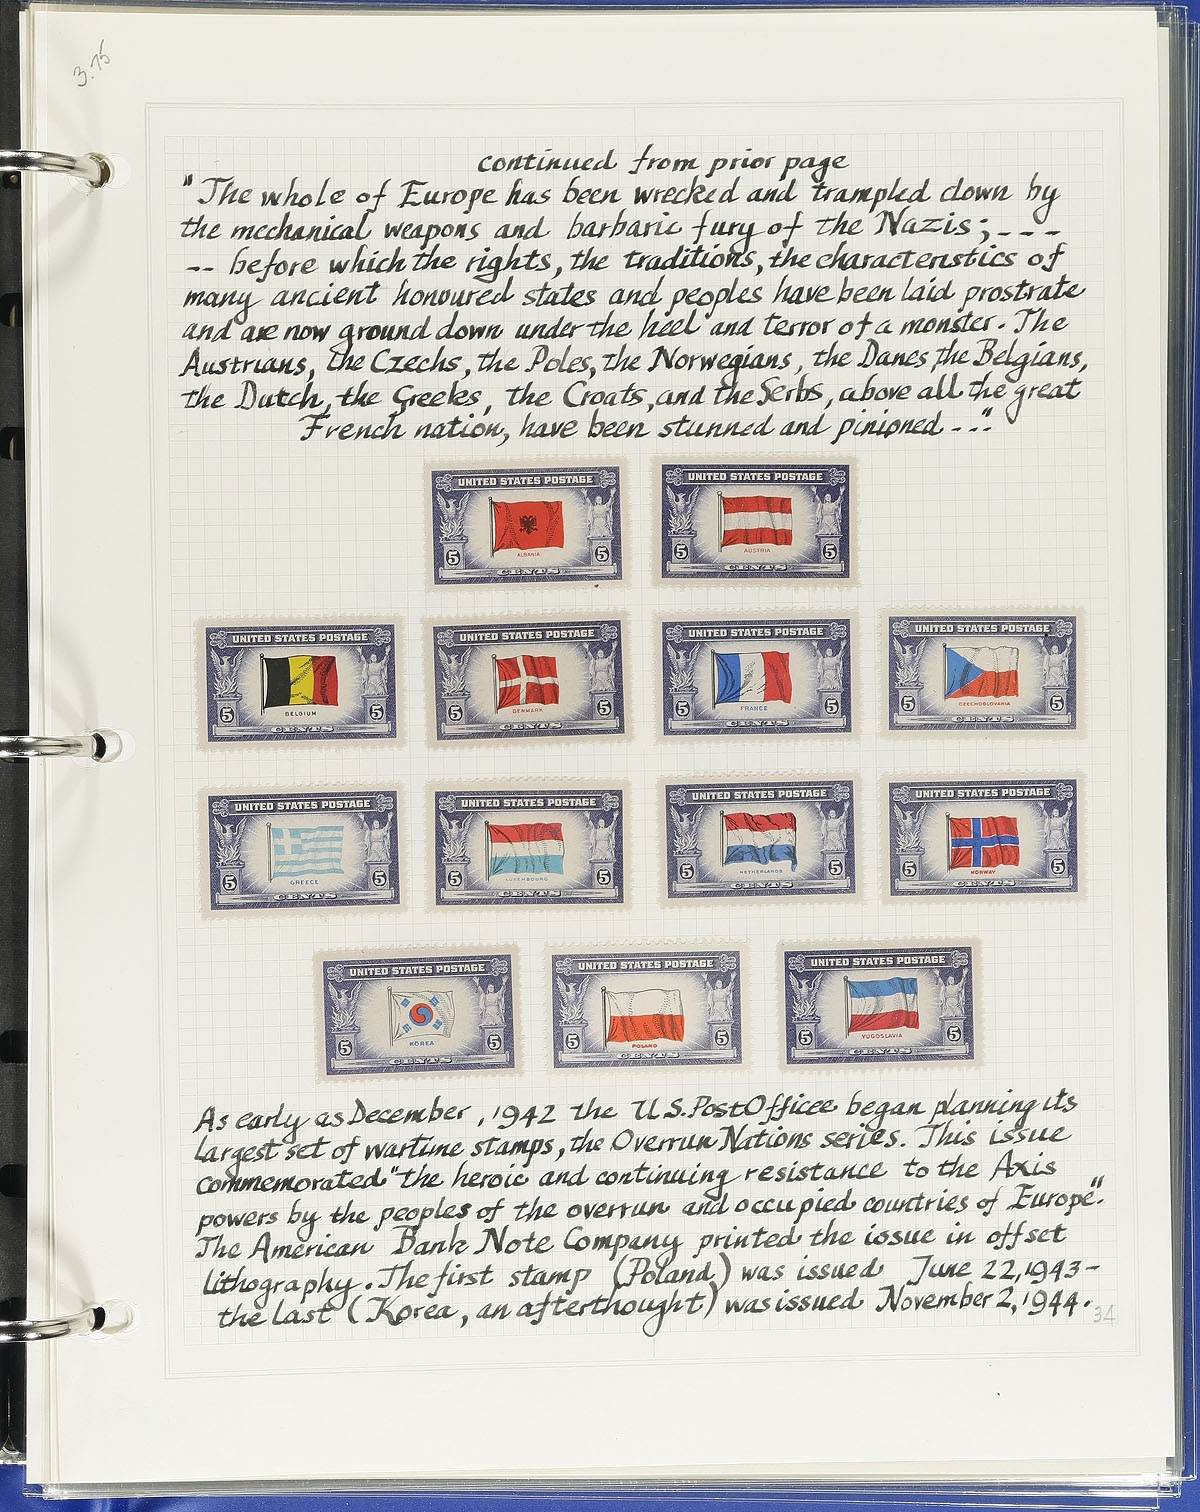 3.75
continued from prior page
"The whole of Europe has been wrecked and trampled down by
the mechanical weapons and barbaric fury of the Nazis; ----
-- before which the rights, the traditions, the characteristics of
many ancient honoured states and peoples have been laid prostrate
and are now ground down under the heel and terror of a monster. The
Austrians, the Czechs, the Poles, the Norwegians, the Danes, the Belgians,
the Dutch, the Greeks, the Croats, and the Serbs, above all the great
French nation, have been stunned and pinioned --."
UNITED STATES POSTAGE UNITED STATES POSTAGE
ALBANIA AUSTRIA
5 5 5 5
CENTS CENTS
UNITED STATES POSTAGE UNITED STATES POSTAGE UNITED STATES POSTAGE UNITED STATES POSTAGE
BELGIUM DENMARK FRANCE CZECHOSLOVAKIA
5 5 5 5 5 5 5 5
CENTS CENTS CENTS CENTS
UNITED STATES POSTAGE UNITED STATES POSTAGE UNITED STATES POSTAGE UNITED STATES POSTAGE
GREECE LUXEMBOURG NETHERLANDS NORWAY
5 5 5 5 5 5 5 5
CENTS CENTS CENTS CENTS
UNITED STATES POSTAGE UNITED STATES POSTAGE UNITED STATES POSTAGE
KOREA POLAND YUGOSLAVIA
5 5 5 5 5 5
CENTS CENTS CENTS
As early as December, 1942 the U.S. Post Officee began planning its
largest set of wartime stamps, the Overrun Nations series. This issue
commemorated "the heroic and continuing resistance to the Axis
powers by the peoples of the overrun and occupied countries of Europe".
The American Bank Note Company printed the issue in offset
lithography. The first stamp (Poland) was issued June 22, 1943-
the last (Korea, an afterthought) was issued November 2, 1944.
34